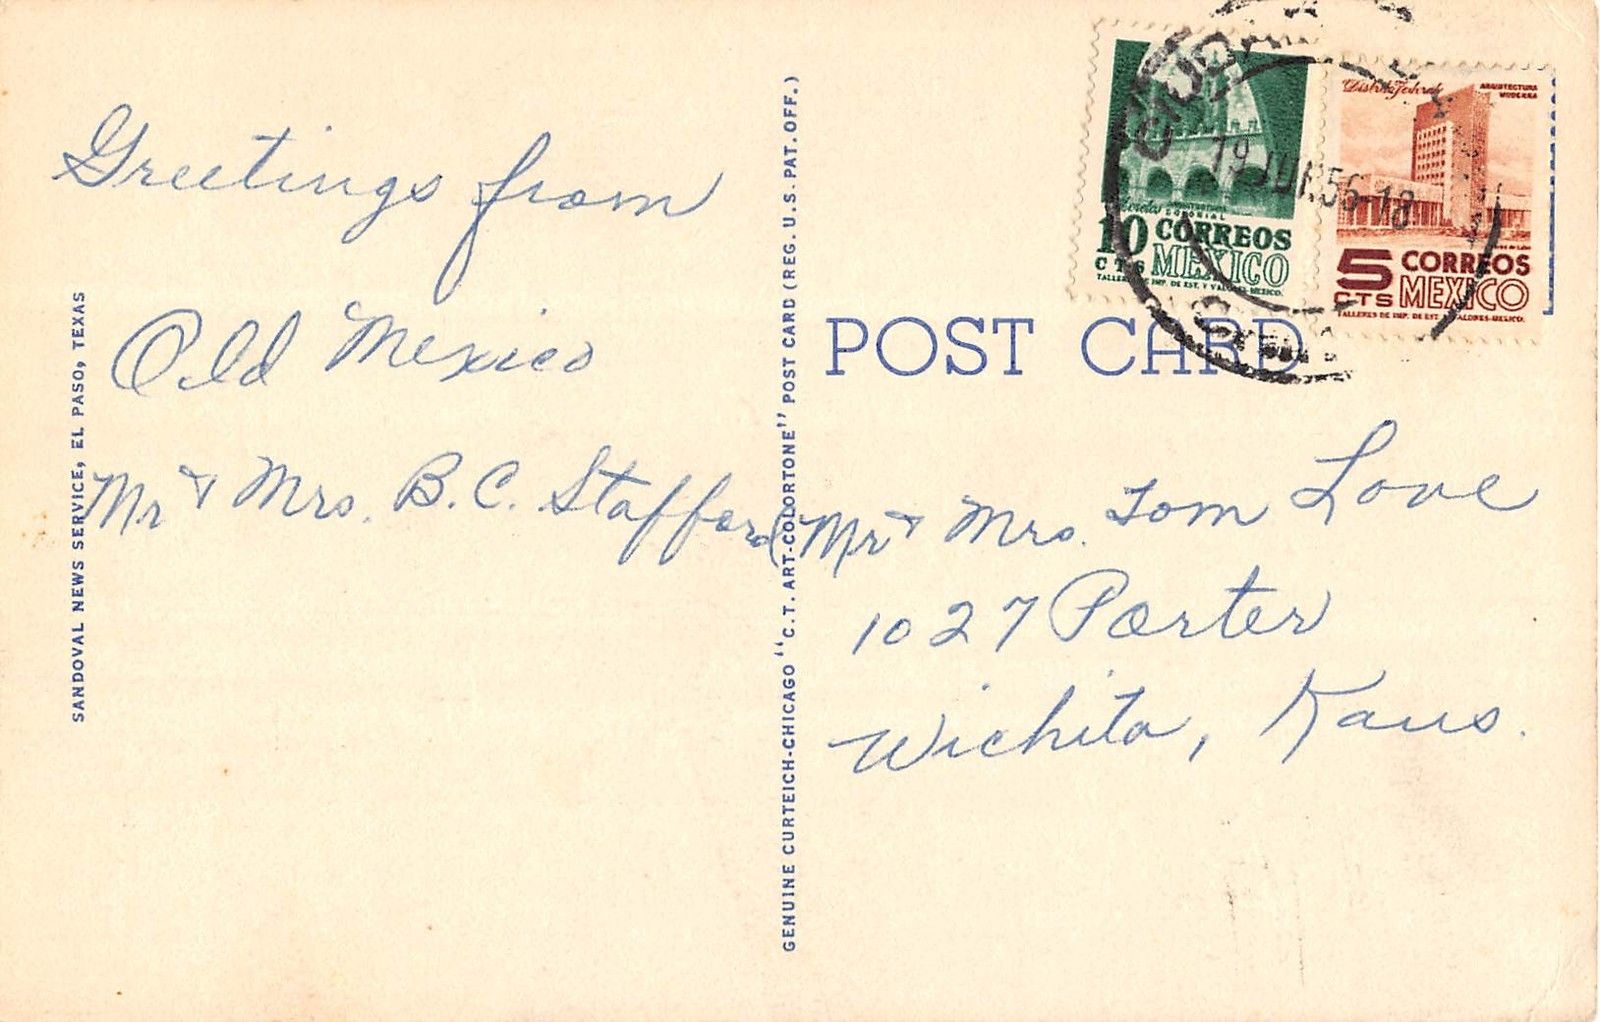 Greetings from
Old Mexico
Mr & Mrs. B.C. Stafford
SANDOVAL NEWS SERVICE, EL PASO, TEXAS
GENUINE CURTEICH-CHICAGO "C.T. ART-COLORTONE" POST CARD (REG. U.S. PAT. OFF.)
10 CORREOS
CTS MEXICO
COLONIAL
Distrito Federal
ARQUITECTURA
MODERNA
5 CORREOS
CTS MEXICO
TALLERES DE IMP. DE EST. Y VALORES-MEXICO.
19 JUN 56-18
POST CARD
Mr & Mrs. Tom Love
1027 Porter
Wichita, Kans.